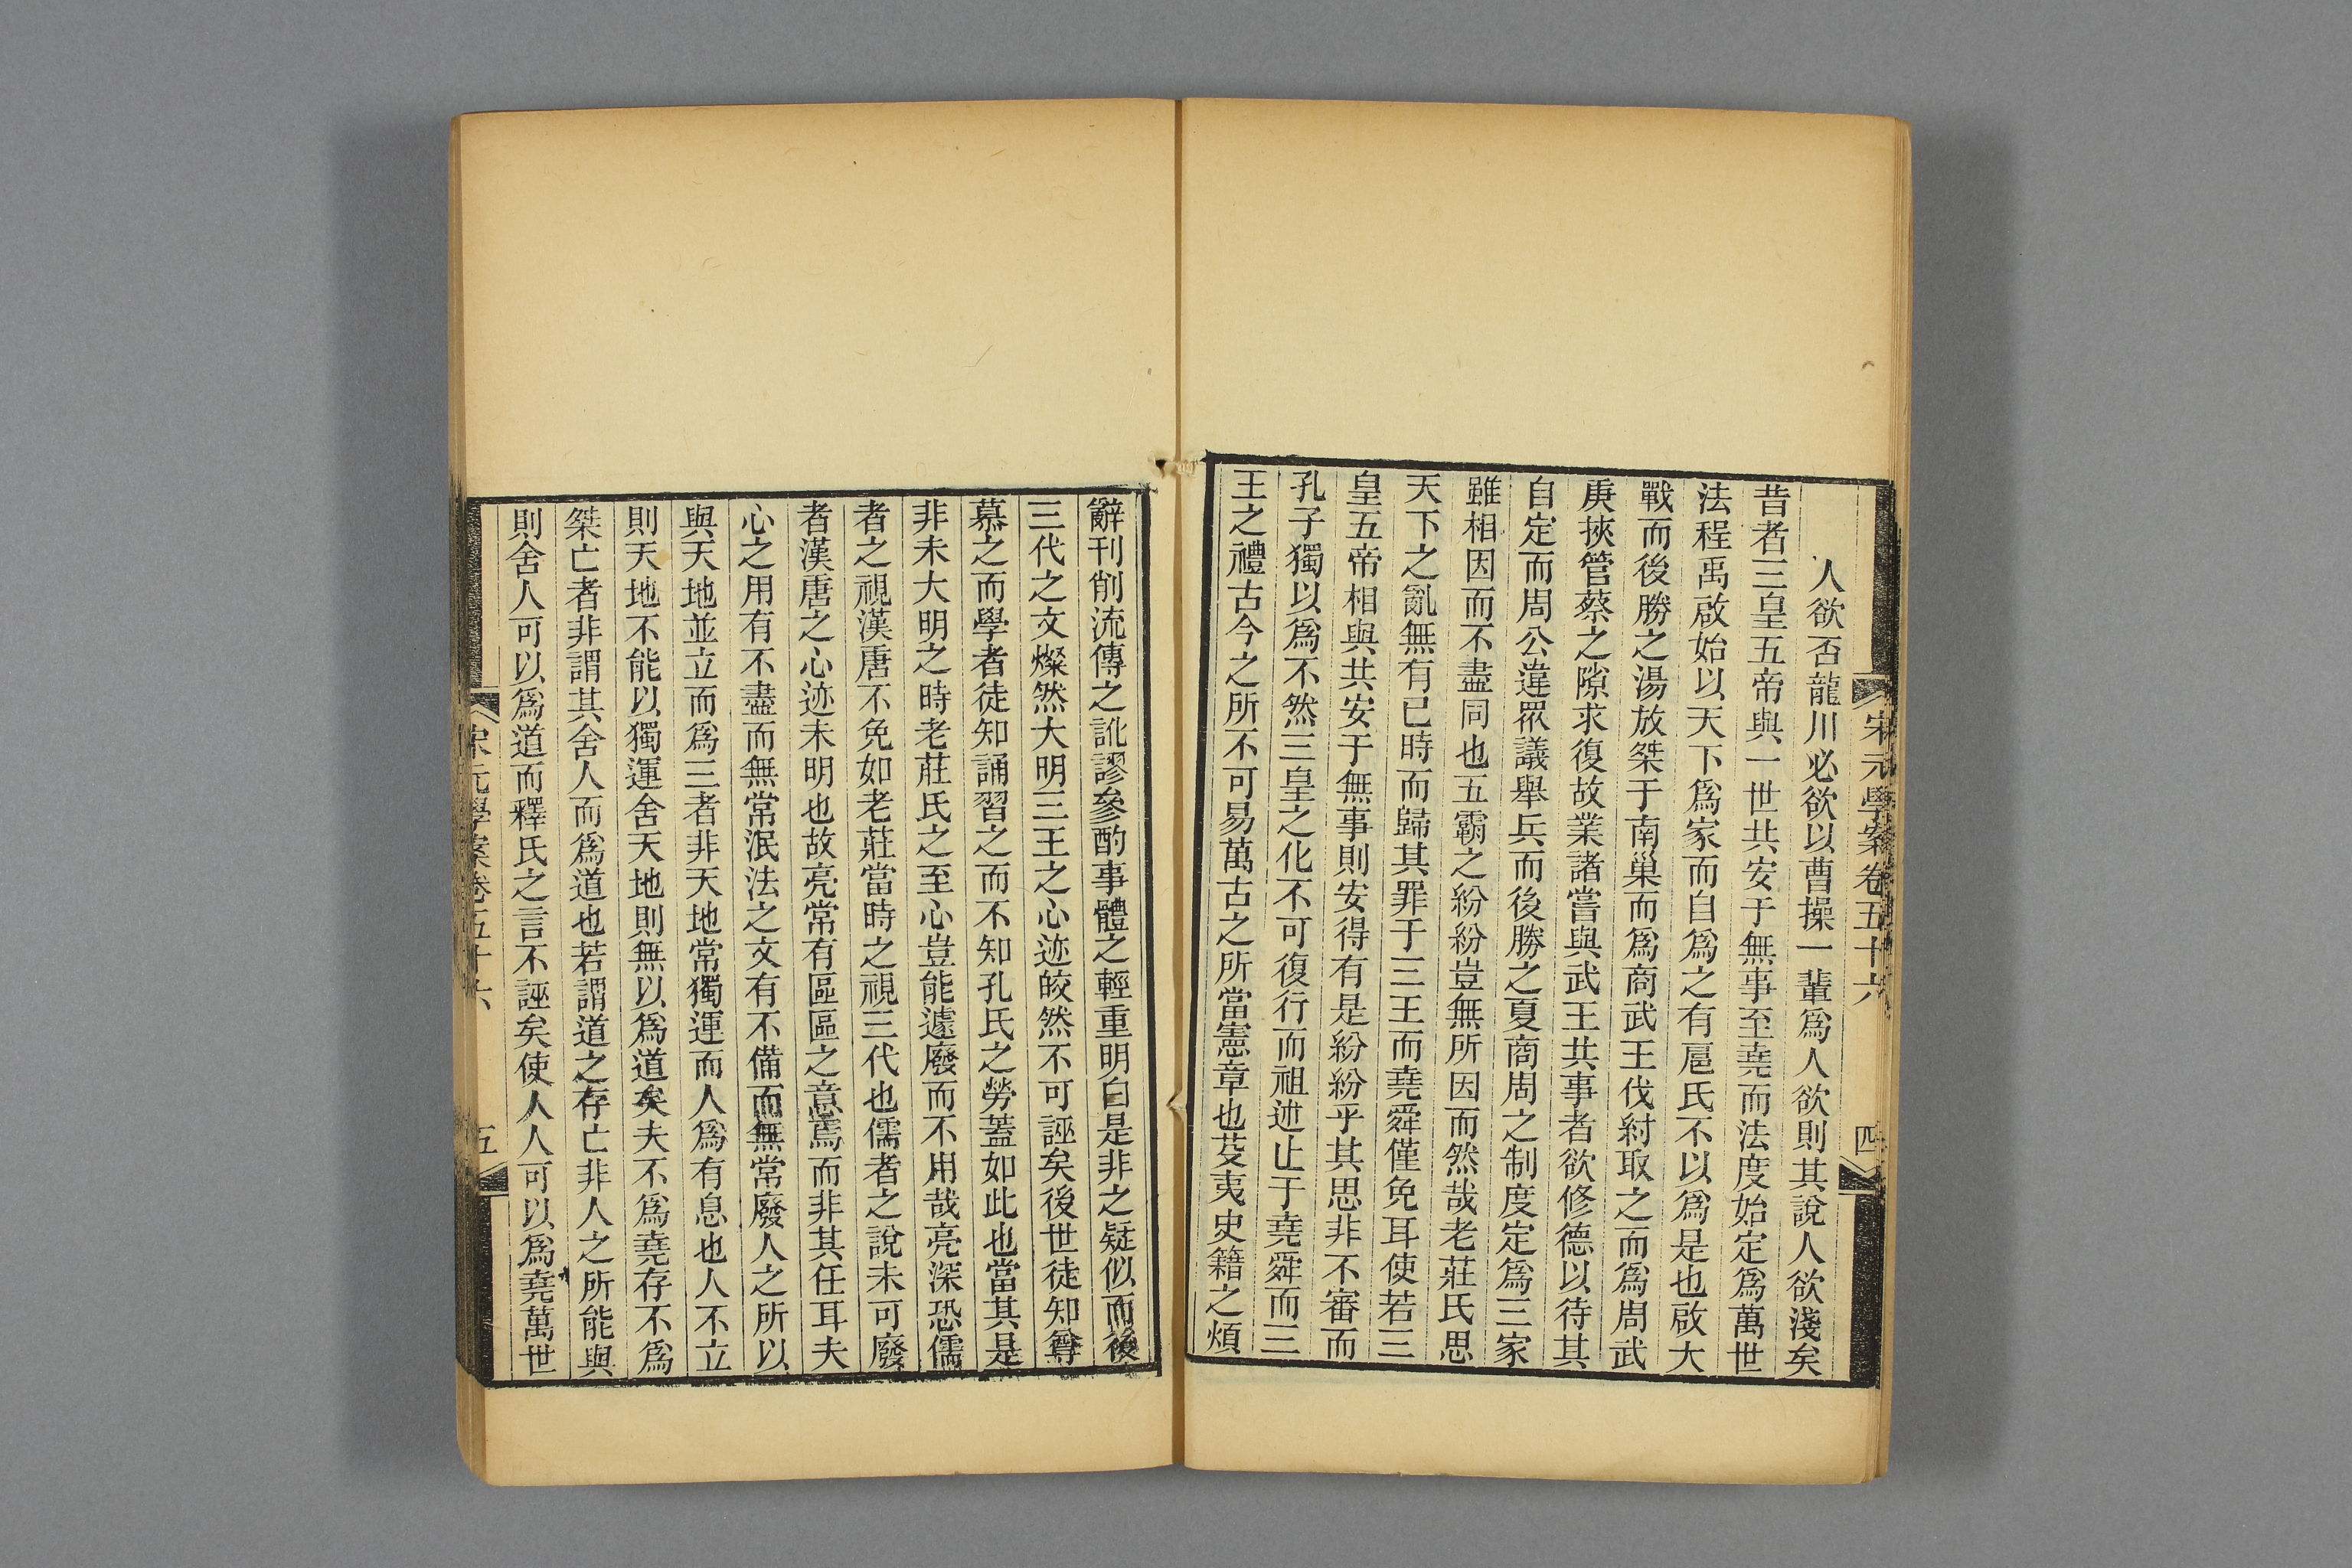 宋元學案卷五十六
四
人欲否龍川必欲以曹操一輩爲人欲則其說人欲淺矣
昔者三皇五帝與一世共安于無事至堯而法度始定爲萬世
法程禹啟始以天下爲家而自爲之有扈氏不以爲是也啟大
戰而後勝之湯放桀于南巢而爲商武王伐紂取之而爲周武
庚挾管蔡之隙求復故業諸嘗與武王共事者欲修德以待其
自定而周公違眾議舉兵而後勝之夏商周之制度定爲三家
雖相因而不盡同也五霸之紛紛豈無所因而然哉老莊氏思
天下之亂無有已時而歸其罪于三王而堯舜僅免耳使若三
皇五帝相與共安于無事則安得有是紛紛乎其思非不審而
孔子獨以爲不然三皇之化不可復行而祖述止于堯舜而三
王之禮古今之所不可易萬古之所當憲章也芟夷史籍之煩
辭刊削流傳之訛謬參酌事體之輕重明白是非之疑似而後
三代之文燦然大明三王之心迹皎然不可誣矣後世徒知尊
慕之而學者徒知誦習之而不知孔氏之勞蓋如此也當其是
非未大明之時老莊氏之至心豈能遽廢而不用哉亮深恐儒
者之視漢唐不免如老莊當時之視三代也儒者之說未可廢
者漢唐之心迹未明也故亮常有區區之意焉而非其任耳夫
心之用有不盡而無常泯法之文有不備而無常廢人之所以
與天地並立而爲三者非天地常獨運而人爲有息也人不立
則天地不能以獨運舍天地則無以爲道矣夫不爲堯存不爲
桀亡者非謂其舍人而爲道也若謂道之存亡非人之所能與
則舍人可以爲道而釋氏之言不誣矣使人人可以爲堯萬世
宋元學案卷五十六
五